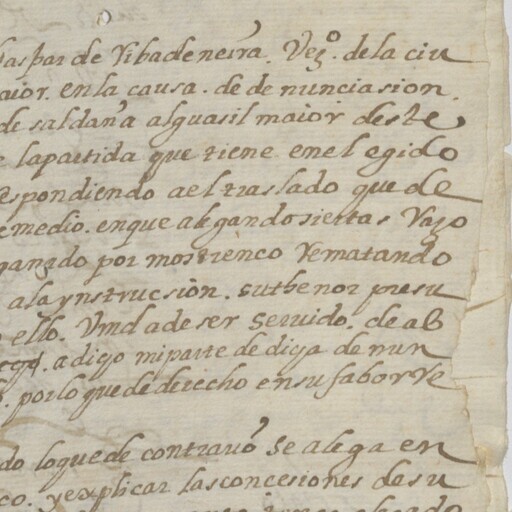 Gaspar de Ribadeneira. Vezo. de la ciu
maior. en la causa. de denunciasion.
de saldaña alguasil maior deste
e la partida que tiene en el egido
respondiendo a el traslado que de
remedio. en que alegando siertas Razo
ganado por mostrenco Rematando
a la ynstrucsion. su thenor presu
ello. Vmd a de ser servido. de ab
a dicho mi parte de dicha denun
por lo que de derecho en su fabor Re
do lo que de contrario se alega en
co. y explicar las concesiones de su